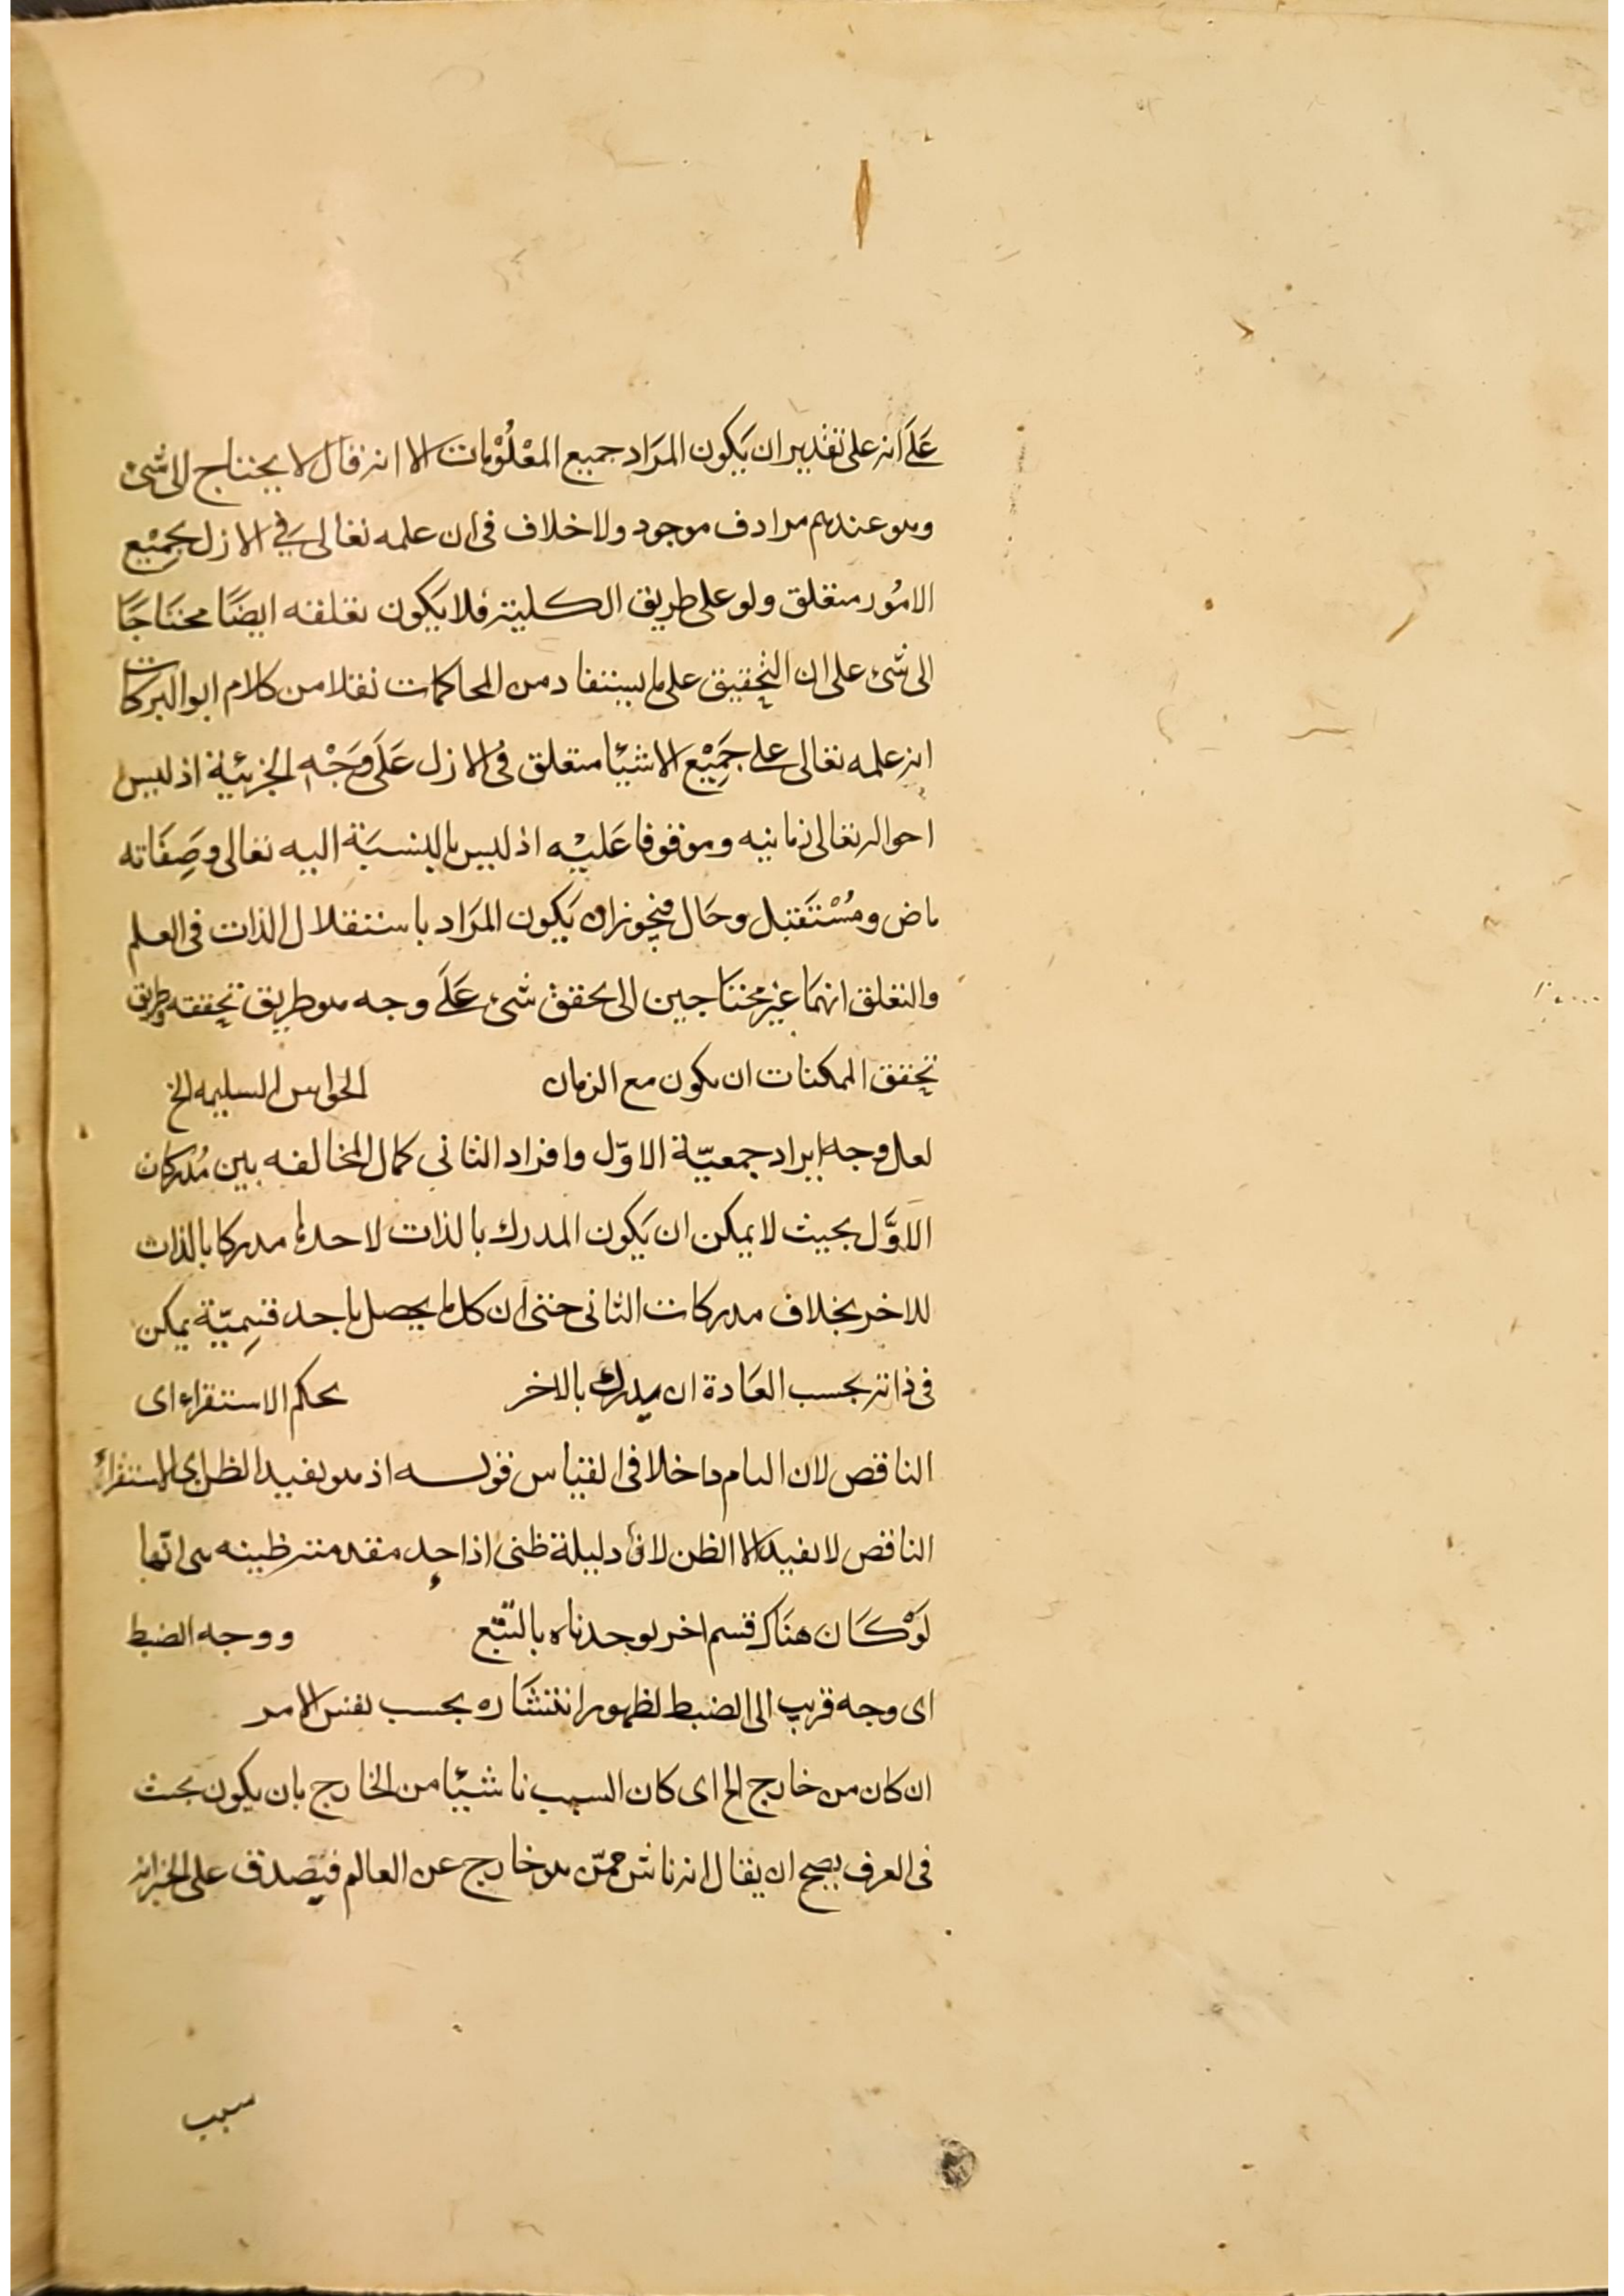 عَلَى انه على تقدير ان يَكون المرَاد جميع المعْلُوْمات الا انه قال لا يحتاج الى شئ
وهو عندهم مرادف موجود ولا خلاف فى ان علمه تعالى في الازل بجَمِيْع
الامُور متعلق ولو على طريق الكلية فلا يَكون تعلقه ايضًا محتاجًا
الى شئ على ان التحقيق على ما يستفاد من المحاكمات نقلا من كلام ابو البركات
انه علمه تعالى على جَمِيْع الاشيئا متعلق فى الازل عَلَى وَجْهِ الجزئية اذ ليس
احواله تعالى زمانيه وموقوفا عَليْه اذ ليس بالنسبَة اليه تعالى وصِفاته
ماض ومُسْتَقبل وحَال فيجوز ان يَكون المرَاد باستقلال الذات فى العلم
والتعلق انهمَا غير محتاجين الى تحقق شئ عَلَى وجه هو طريق تحققه وطريق
تحقق الممكنات ان يكون مع الزمان الحواس السليمه الخ
لعل وجه ايراد جمعيّة الاوّل وافراد الثانى كمال المخالفه بين مُدركات
الاوَّل بحيث لا يمكن ان يَكون المدرك بالذات لاحدها مدركا بالذات
للاخر بخلاف مدركات الثانى حتى ان كل ما يحصل باحد قسِميّة يمكن
فى ذاته بحسب العَادة ان يدرك بالاخر بحكم الاستقراء اى
الناقص لان التام داخلا فى القياس قوله اذ هو يفيد الظن اى الاستقراء
الناقص لا يفيد الا الظن لان دليلة ظنى اذ احد مقدمته ظنيه هى انها
لَوْ كَان هنَاك قسم اخر لوجدناه بالتتبع ووجه الضبط
اى وجه قريب الى الضبط لظهور انتشَاره بحسب نفس الامر
ان كان من خارج الخ اى كان السبب ناشيئا من الخارج بان يكون بحيث
فى العرف يصح ان يقال انه ناش ممّن هو خارج عن العالم فيصدق على الخبر انه
سبب